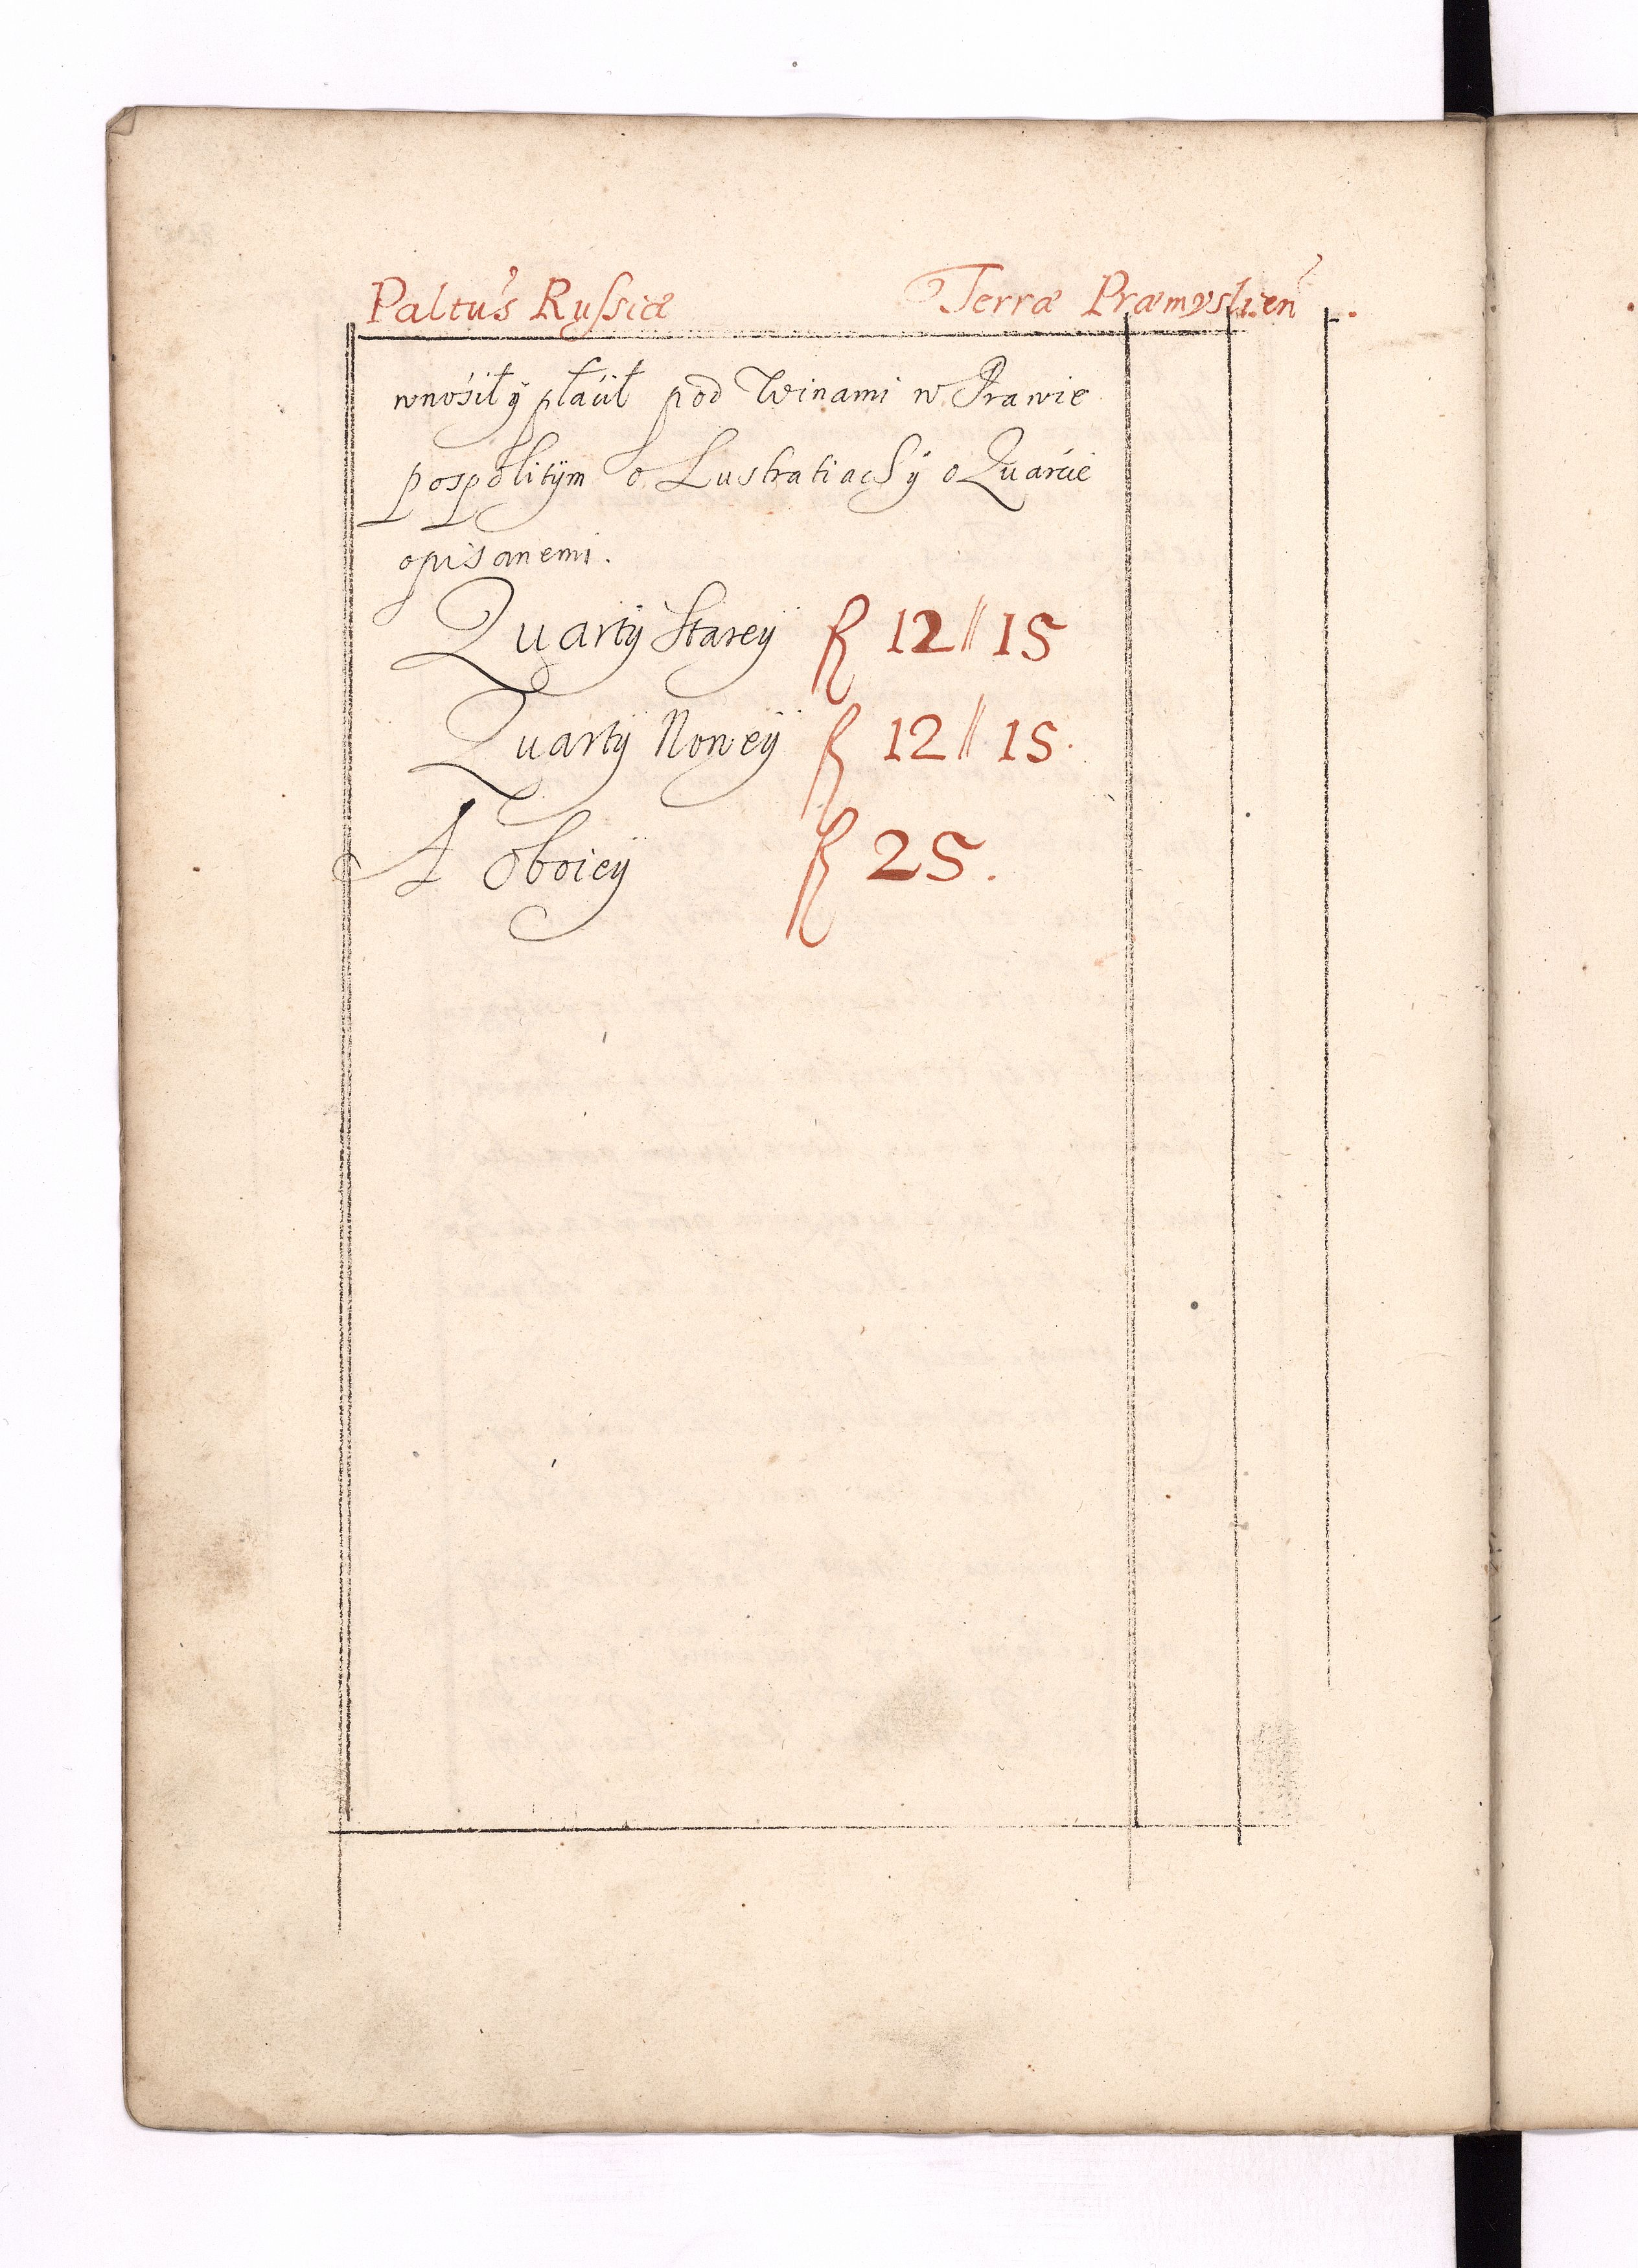 Paltu's Russiæ Terræ Præmyslien̄.
wnośił y płaćił pod Winami w Prawie
pospolitÿm o Lustratiach ÿ o Quarćie
opisanemi.
Quartÿ Stareÿ fl 12 // 15
Quartÿ Noweÿ fl 12 // 15.
A oboieÿ fl 25.